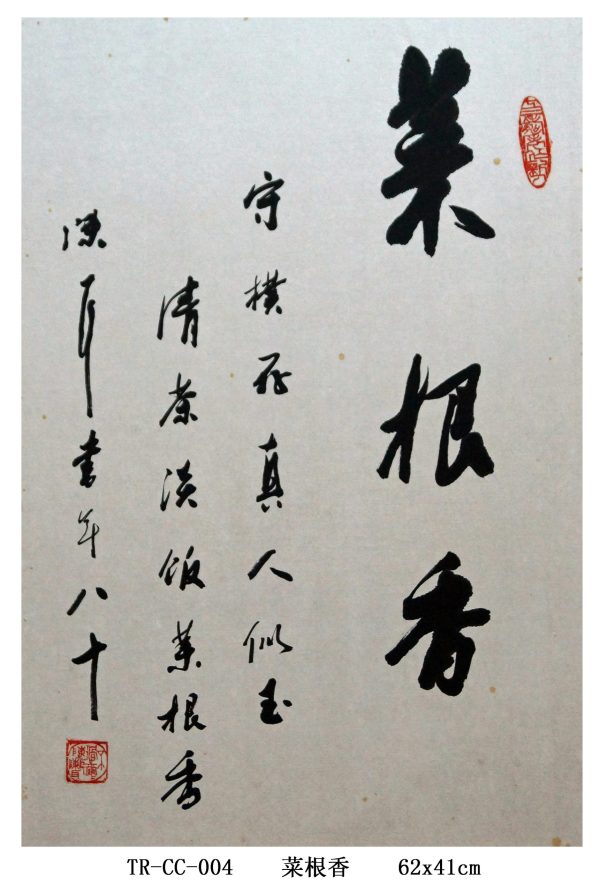 菜根香
守樸存真人似玉
清茶淡飯菜根香
書年八十
TR-CC-004 菜根香 62x41cm